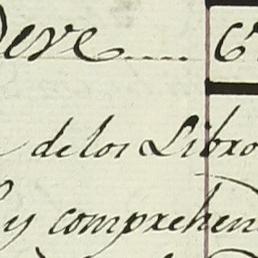 eve..... 6
de los Libro
y comprehen